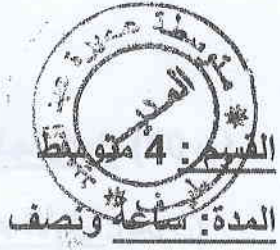 متوسطة
المدير
القسم : 4 متوسط
المدة: ساعة ونصف